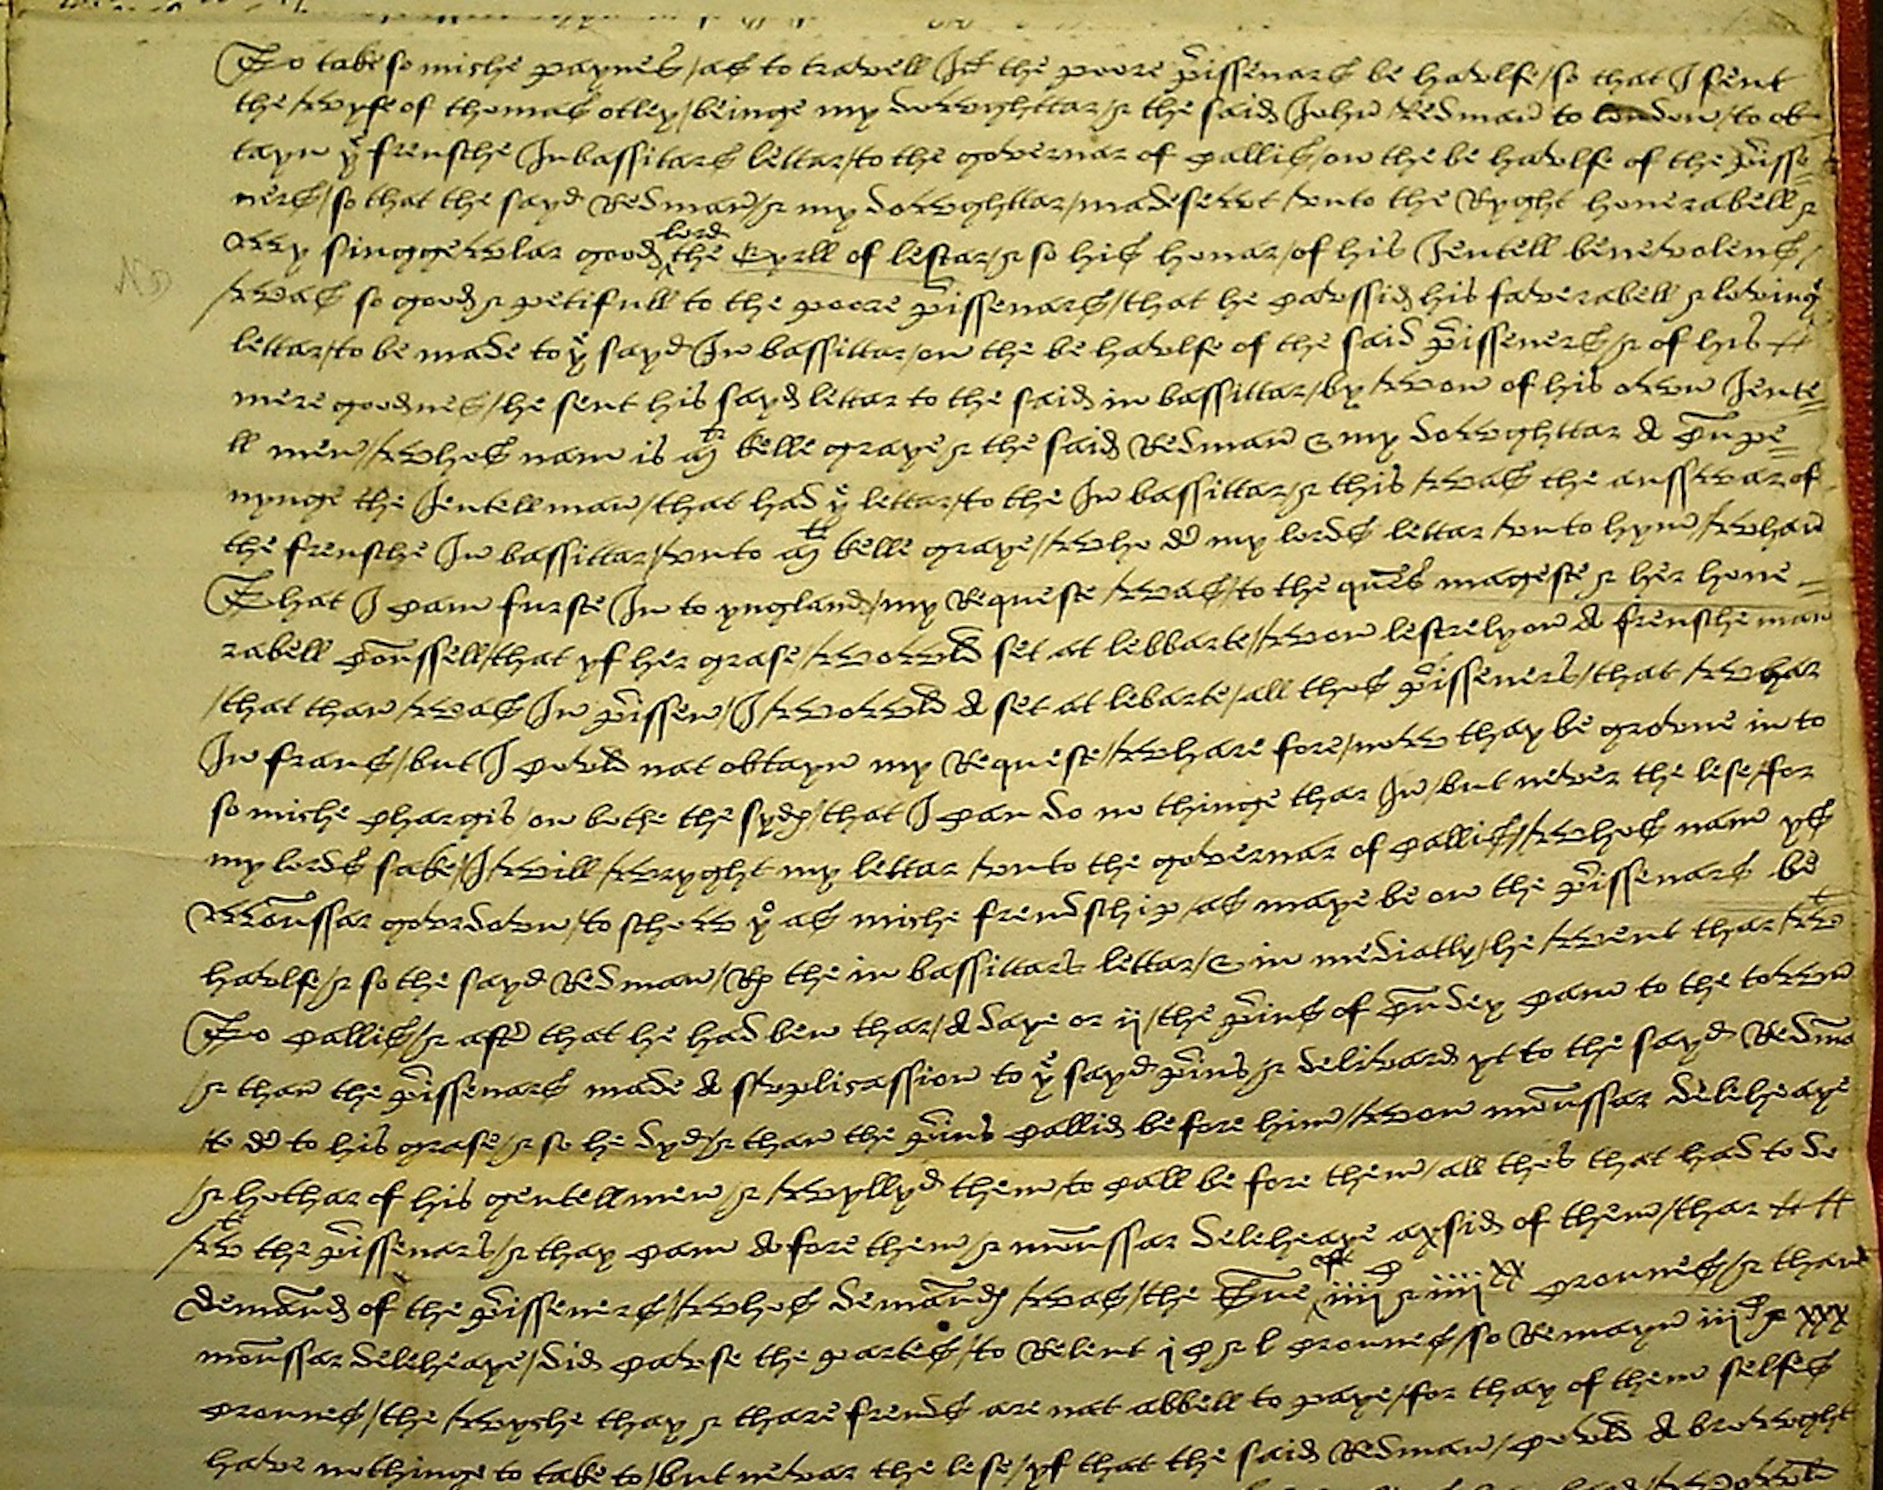 To take so miche paynes / as to travell In the poore prissenars be havlfe / so that I sent
the / wyfe of thomas otley / beinge my dowghttar / & the said John Redman to london / to ob
tayn ye frensche Inbassitars lettar / to the governar of callis / on the be havlfe of the prisse=
ners / so that the sayd Redman / & my dowghttar / made sewt / vnto the Ryght honerabell &
owr singgewlar good lord the Eyrll of lestar / & so his honar / of his Jentell benevolens /
/ was so good & petifull to the poore prissenars / that he cavssid his faverabell & loving
lettar / to be made to ye sayd In bassittar / on the be havlfe of the said prisseners / & of his
mere goodnes / he sent his sayd lettar to the said in bassittar / by / won of his own Jente=
ll men / whos nam is mr kelle grape & the said Redman & my dowghttar a cumpe=
nynge the Jentell man / that had ye lettar / to the In bassittar / & this / was the answar of
the frensche In bassittar / vnto mr kelle grape / who dd my lords lettar / vnto hym / whan
That I cam furste In to yngland / my Requeste / was / to the quens mageste & her hone=
rabell counssell / that yf her grase / wowld set at lebbarte / won lestrelyon a frensche man
/ that than / was In prissen / I / wowld a set at lebarte / all thos prisseners / that / whar
In frans / but I covld nat obtayn my Requeste / whare fore / now thay be growne in to
so miche chargis / on bothe the syds / that I can do no thinge thar In / but never the lese / for
my lords sake / I / will / wryght my lettar / vnto the governar of callis / whos nam ys
Mounssar govrdovn / to schew ye as miche frendschip / as maye be on the prissenars be
havlfe / & so the sayd Redman / Rd the in bassittars lettar / & in mediatly / he / went thar / wt
To callis / & aftr that he had ben thar / a daye or ij / the prins of cundey cam to the town
/ & than the prissenars made a svplicassion to ye sayd prins / & delivard yt to the sayd Redman
/ to dd to his grase / & so he dyd / & than the prins callid before him / won mounssar deleheaye
/ & hothar of his gentell men / & / wyllyd them / to call be fore them / all thes that had to do
/ wt the prissenars / & thay cam a fore them / & mounssar deleheaye axsid of them / thar
demannd of the prisseners / whos demannd / was / the sume of iiijC & iiijxx crounes / & than
mounssar deleheaye / did cavse the partes / to Relent jC & l crounes / so Remayn iijC & xxx
crounes / the / wyche thay & thare frends are nat abbell to paye / for thay of them selfes
have nothinge to take to / but nevar the lese / yf that the said Redman / covld a browght